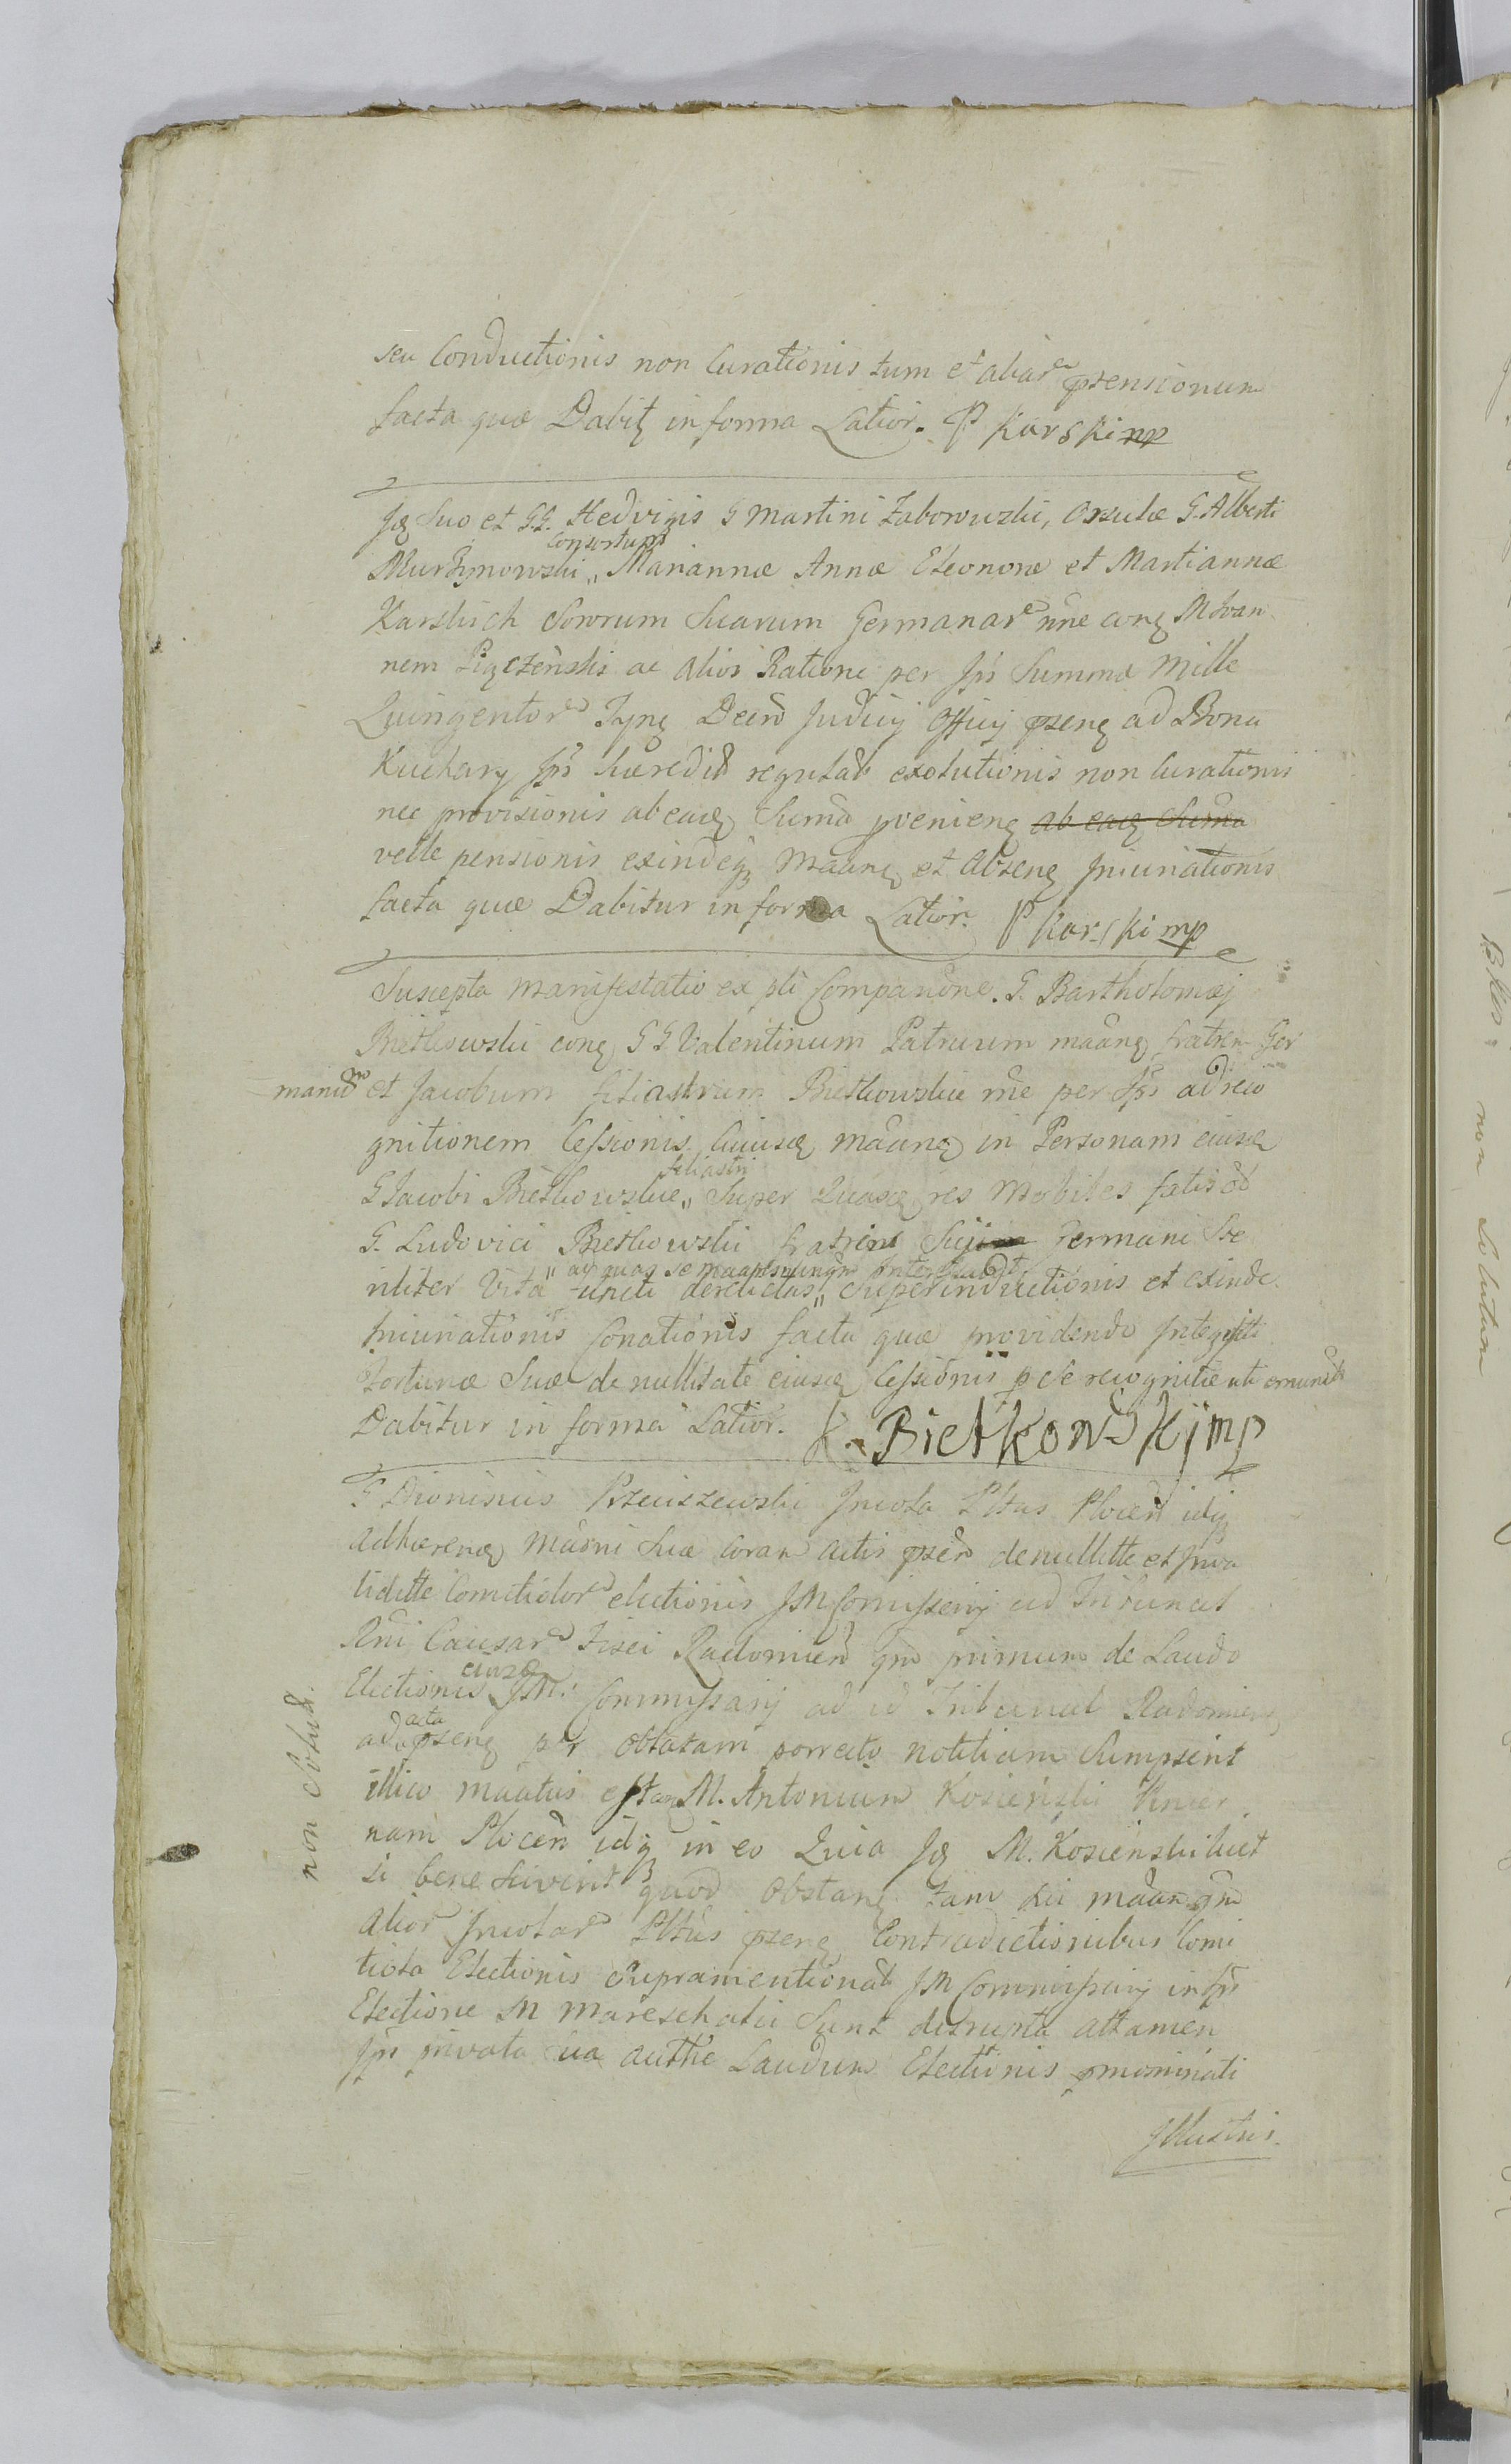 seu Conductionis non Curationis tum et aliar prensionum
facta quæ Dabit in forma Latior. P Karski mp
Jg Suo et GG. Hedvigis G Martini Zaborowski, Orsulæ G. Alberti
Murzynowski " consortum " Mariannæ Annæ Eleonoræ et Martiannæ
Karskich Sororum Suarum Germanar nne cong M Ioan
nem Pigczenski ac alios Ratione per Ips Summa Mille
Quingentor Tynf Decro Judicij Officij pseng ad Bona
Kuchary Ips hæredit regulat exolutionis non Curationis
nec provisionis ab eadq Suma pvenieng ab eadq Suma
velle pensionis exindeq Maang et Abseng Injuriationis
facta quæ Dabitur in forma Latior. P Karski mp
Suscepta manifestatio ex pti Comparione. G. Bartholomæj
Bietkowski cong GG Valentinum Patruum maang fratrem Ger
manu et Jacobum filiastrum Bietkowskie nne per Ips ad reco
gnitionem Cessionis Cuiusq maang in Personam eiusd
G Jacobi Bietkowskie " filiastri " Super Quasq res Mobiles fatis Ad
G. Ludovici Bietkowski fratris Sui Germani Ste
riliter Vita functi derelictas " Superinductionis et exinde
Iniuriationis Conationis facta quæ providendo Integrit
Fortunæ Suæ de nullitate eiusq Cessionis p se recognitæ uti
Dabitur in forma Latior. Bietkowskij mp
G Dionisius Przeciszewski Incola Pltus Plocen idq
adhæreng maoni Suæ coram actis psen de nullitte et Inva
lidtte Comitiolor electionis JM Comissarij ad Tribunal
Rni Causar Fisci Radomien qno primum de Laudo
Electionis eiusq JM. Commissarij ad id Tribunal Radomieng
ad acta pseng pr oblatam porrecto notitiam Sumpsint
illico maatus est M. Antonium Kosienski
nam Plocen idq in eo Quia Jg M. Kosienski licet
si bene Sciverit quod Obstang tam Sui maan qm
alior Incolar Pltus pseng Contradictionibus Comi
tiola Electionis Supramentionat JM Commissarij in Ips
Electione M Mareschalci Sunt disrupta attamen
Ips privata sua autthe Laudum Electionis pnominati
Illustris.
non Solut.
non Solutum